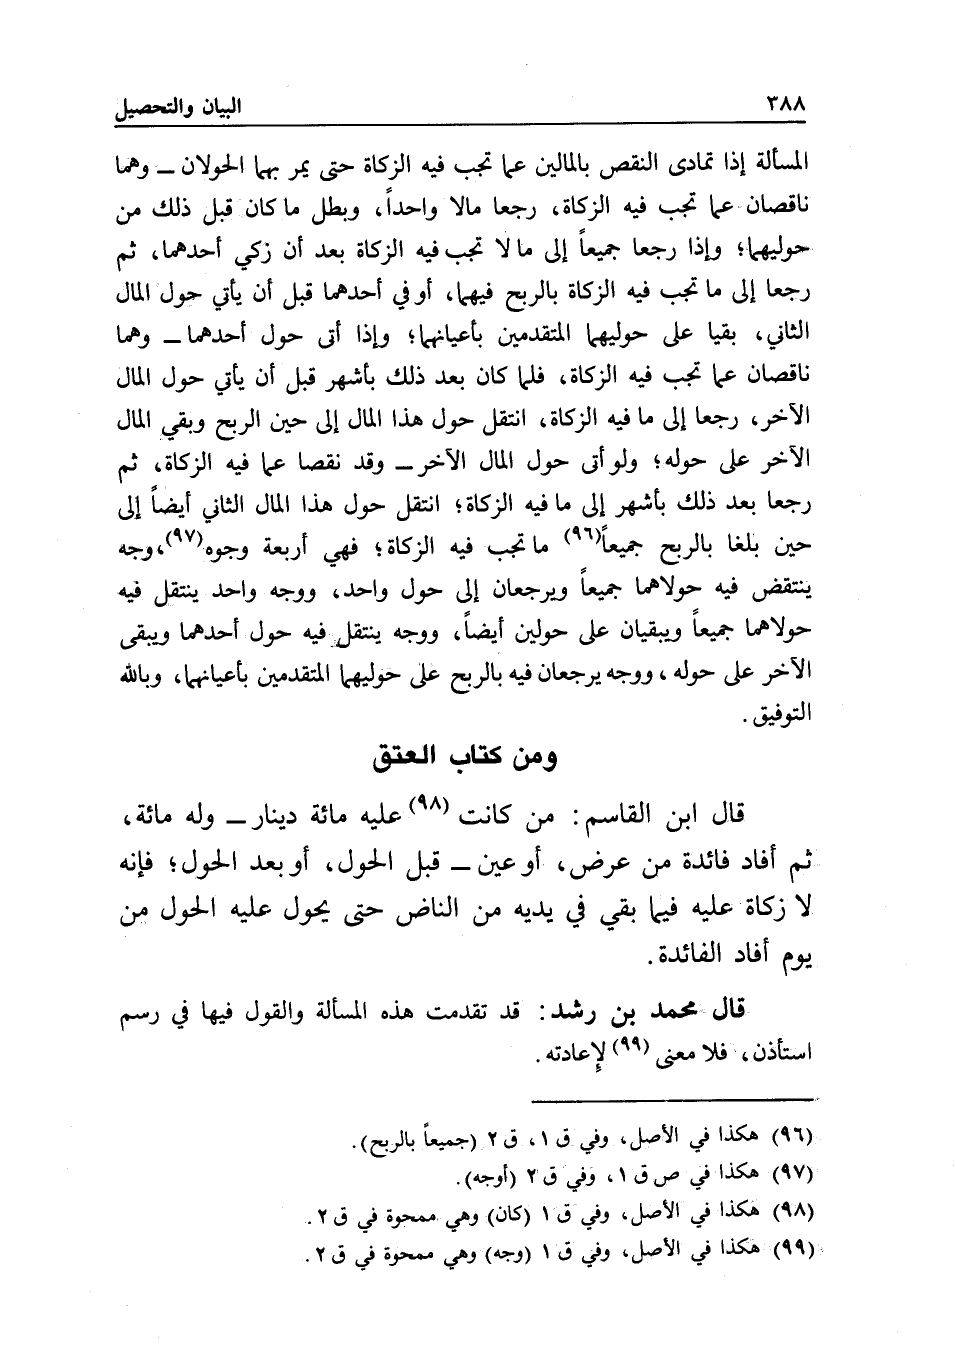 ٣٨٨
البيان والتحصيل
المسألة إذا تمادى النقص بالمالين عما تجب فيه الزكاة حتى يمر بهما الحولان ــ وهما
ناقصان عما تجب فيه الزكاة، رجعا مالا واحداً، وبطل ما كان قبل ذلك من
حوليهما؛ وإذا رجعا جميعاً إلى ما لا تجب فيه الزكاة بعد أن زكي أحدهما، ثم
رجعا إلى ما تجب فيه الزكاة بالربح فيهما، أو في أحدهما قبل أن يأتي حول المال
الثاني، بقيا على حوليهما المتقدمين بأعيانهما؛ وإذا أتى حول أحدهما ــ وهما
ناقصان عما تجب فيه الزكاة، فلما كان بعد ذلك بأشهر قبل أن يأتي حول المال
الآخر، رجعا إلى ما فيه الزكاة، انتقل حول هذا المال إلى حين الربح وبقي المال
الآخر على حوله؛ ولو أتى حول المال الآخر ــ وقد نقصا عما فيه الزكاة، ثم
رجعا بعد ذلك بأشهر إلى ما فيه الزكاة؛ انتقل حول هذا المال الثاني أيضاً إلى
حين بلغا بالربح جميعاً(٩٦) ما تجب فيه الزكاة؛ فهي أربعة وجوه(٩٧)، وجه
ينتقض فيه حولاهما جميعاً ويرجعان إلى حول واحد، ووجه واحد ينتقل فيه
حولاهما جميعاً ويبقيان على حولين أيضاً، ووجه ينتقل فيه حول أحدهما ويبقى
الآخر على حوله، ووجه يرجعان فيه بالربح على حوليهما المتقدمين بأعيانهما، وبالله
التوفيق.
ومن كتاب العتق
قال ابن القاسم: من كانت(٩٨) عليه مائة دينار ــ وله مائة،
ثم أفاد فائدة من عرض، أو عين ــ قبل الحول، أو بعد الحول؛ فإنه
لا زكاة عليه فيما بقي في يديه من الناض حتى يحول عليه الحول من
يوم أفاد الفائدة.
قال محمد بن رشد: قد تقدمت هذه المسألة والقول فيها في رسم
استأذن، فلا معنى(٩٩) لإعادته.
(٩٦) هكذا في الأصل، وفي ق ١، ق ٢ (جميعاً بالربح).
(٩٧) هكذا في ص ق ١، وفي ق ٢ (أوجه).
(٩٨) هكذا في الأصل، وفي ق ١ (كان) وهي ممحوة في ق ٢.
(٩٩) هكذا في الأصل، وفي ق ١ (وجه) وهي ممحوة في ق ٢.